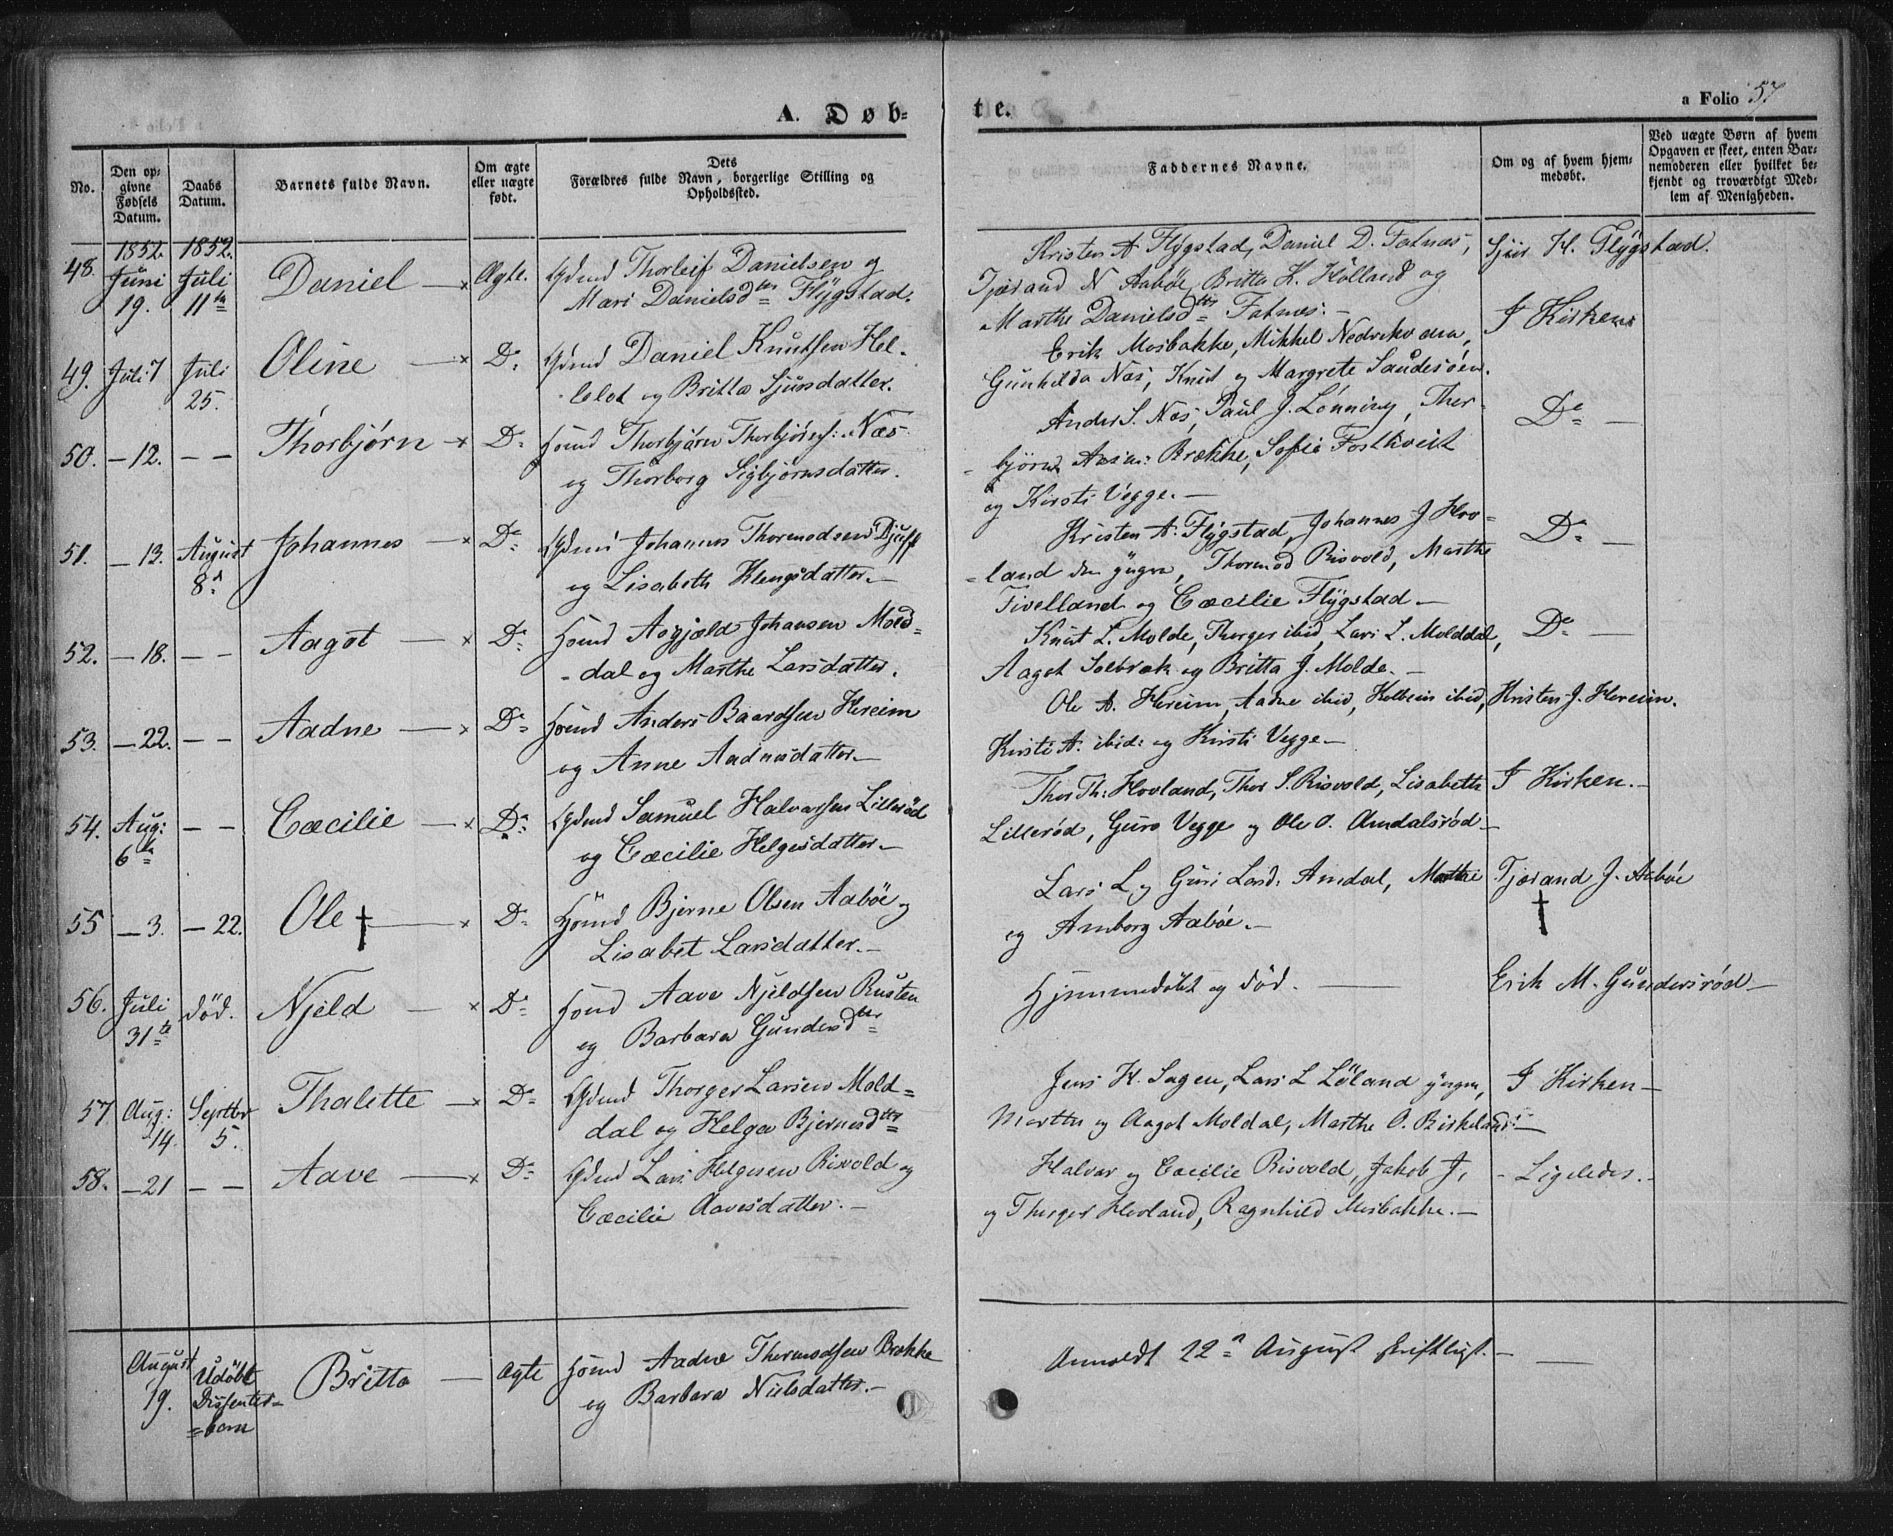 A. Døb-
te.
a Folio 57
No.
Den op-
givne
Fødsels
Datum.
Daabs
Datum.
Barnets fulde Navn.
Om ægte
eller uægte
født.
Dets
Forældres fulde Navn, borgerlige Stilling og
Opholdssted.
Faddernes Navne.
Om og af hvem hjem-
medøbt.
Ved uægte Børn af hvem
Opgaven er skeet, enten Bar-
nemoderen eller hvilket be-
kjendt og troværdigt Med-
lem af Menigheden.
48. 1852. Juni 19. 1852. Juli 11te Daniel — × Ægte.
Thorleif Danielsen og
Mari Danielsdtter Flÿgstad.
Kristen A Flÿgstad, Daniel D. Fatnæs,
Tjærand N Aabøe, Britta H. Hölland og
Marthe Danielsdttr Fatnæs. —
H. Flÿgstad.
49. Juli 7 Juli 25. Oline — × Do
Daniel Knutsen Hel-
lelot og Britta Sjursdatter.
Erik Mosbakke, Mikkel
Gunhilda Næs, Knut og Margrete Saudesøen.
I Kirken
50. — 12. — — Thorbjørn — × Do
Thorbjørn Thorbjørns: Næs
og Thorborg Sigbjørnsdatter.
Ander S. Næs, Paul J. Lønning, Thor-
bjørn Brække, Sofie
og Kirsti Vegge. —
Do —
51. — 13. August 8d Johannes — × Do
Johannes Thormodsen Djuff
og Lisabeth Klengsdatter. —
Kristen A. Flÿgstad, Johannes J Hov-
land den yngre, Thormod Risvold, Marthe
Tivelland og Cæcilie Flÿgstad —
Do —
52. — 18. — — Aagot — × Do
Asgjæld Johansen Mold-
dal og Marthe Larsdatter.
Knut L. Molde, Thorger ibid, Lars L. Molddal,
Aagot Selbræk og Britta J. Molde. —
Do —
53. — 22. — — Aadne — × Do
Anders Baardsen Hereim
og Anne Aadnesdatter. —
Ole A. Hereim, Aadne ibid, Kolbein ibid,
Kirsti A. ibid: og Kirsti Vegge —
Kristen J. Hereim.
54. Aug: 6te — — Cæcilie — × Do
Samuel Halvorsen Lillerød
og Cæcilie Helgesdatter —
Thor Th: Hovland, Thor S. Risvold, Lisabeth
Lillerød, Guro Vegge og Ole O. Amdalsrød —
I Kirken. —
55 — 3. — 22. Ole † — × Do
Bjerne Olsen Aabøe og
Lisabet Larsdatter. —
Lars L. og Guri Larsd: Amdal, Marthe
og Amborg Aabøe. —
Tjærand J. Aabøe
†
56. Juli 31te død. Njeld — × Do
Aave Njeldsen Rusten
og Barbara Gundersdtter
Hjemmedøbt og død. —
Erik M. Gundersrød —
57 Aug: 14. Septbr 5. Thalette — × Do
Thorger Larsen Mold-
dal og Helga Bjernesdttr
Jens H. Sagen, Lars L Løland yngre,
Marthe og Aagot Moldal, Marthe O. Birkeland —
I Kirken —
58. — 21 — — Aave — × Do
Lars Helgesen Risvold og
Cæcilie Aavesdatter. —
Halvor og Cæcilie Risvold, Jakob J,
og Thorger Hovland, Ragnhild Mosbakke. —
- Ligeledes. -
August 19. Udöbt Dissenter-barn Britta — Ægte
Aadne Thormodsen Brække
og Barbara Nielsdatter. —
Anmeldt 22d August skriftligt. — —